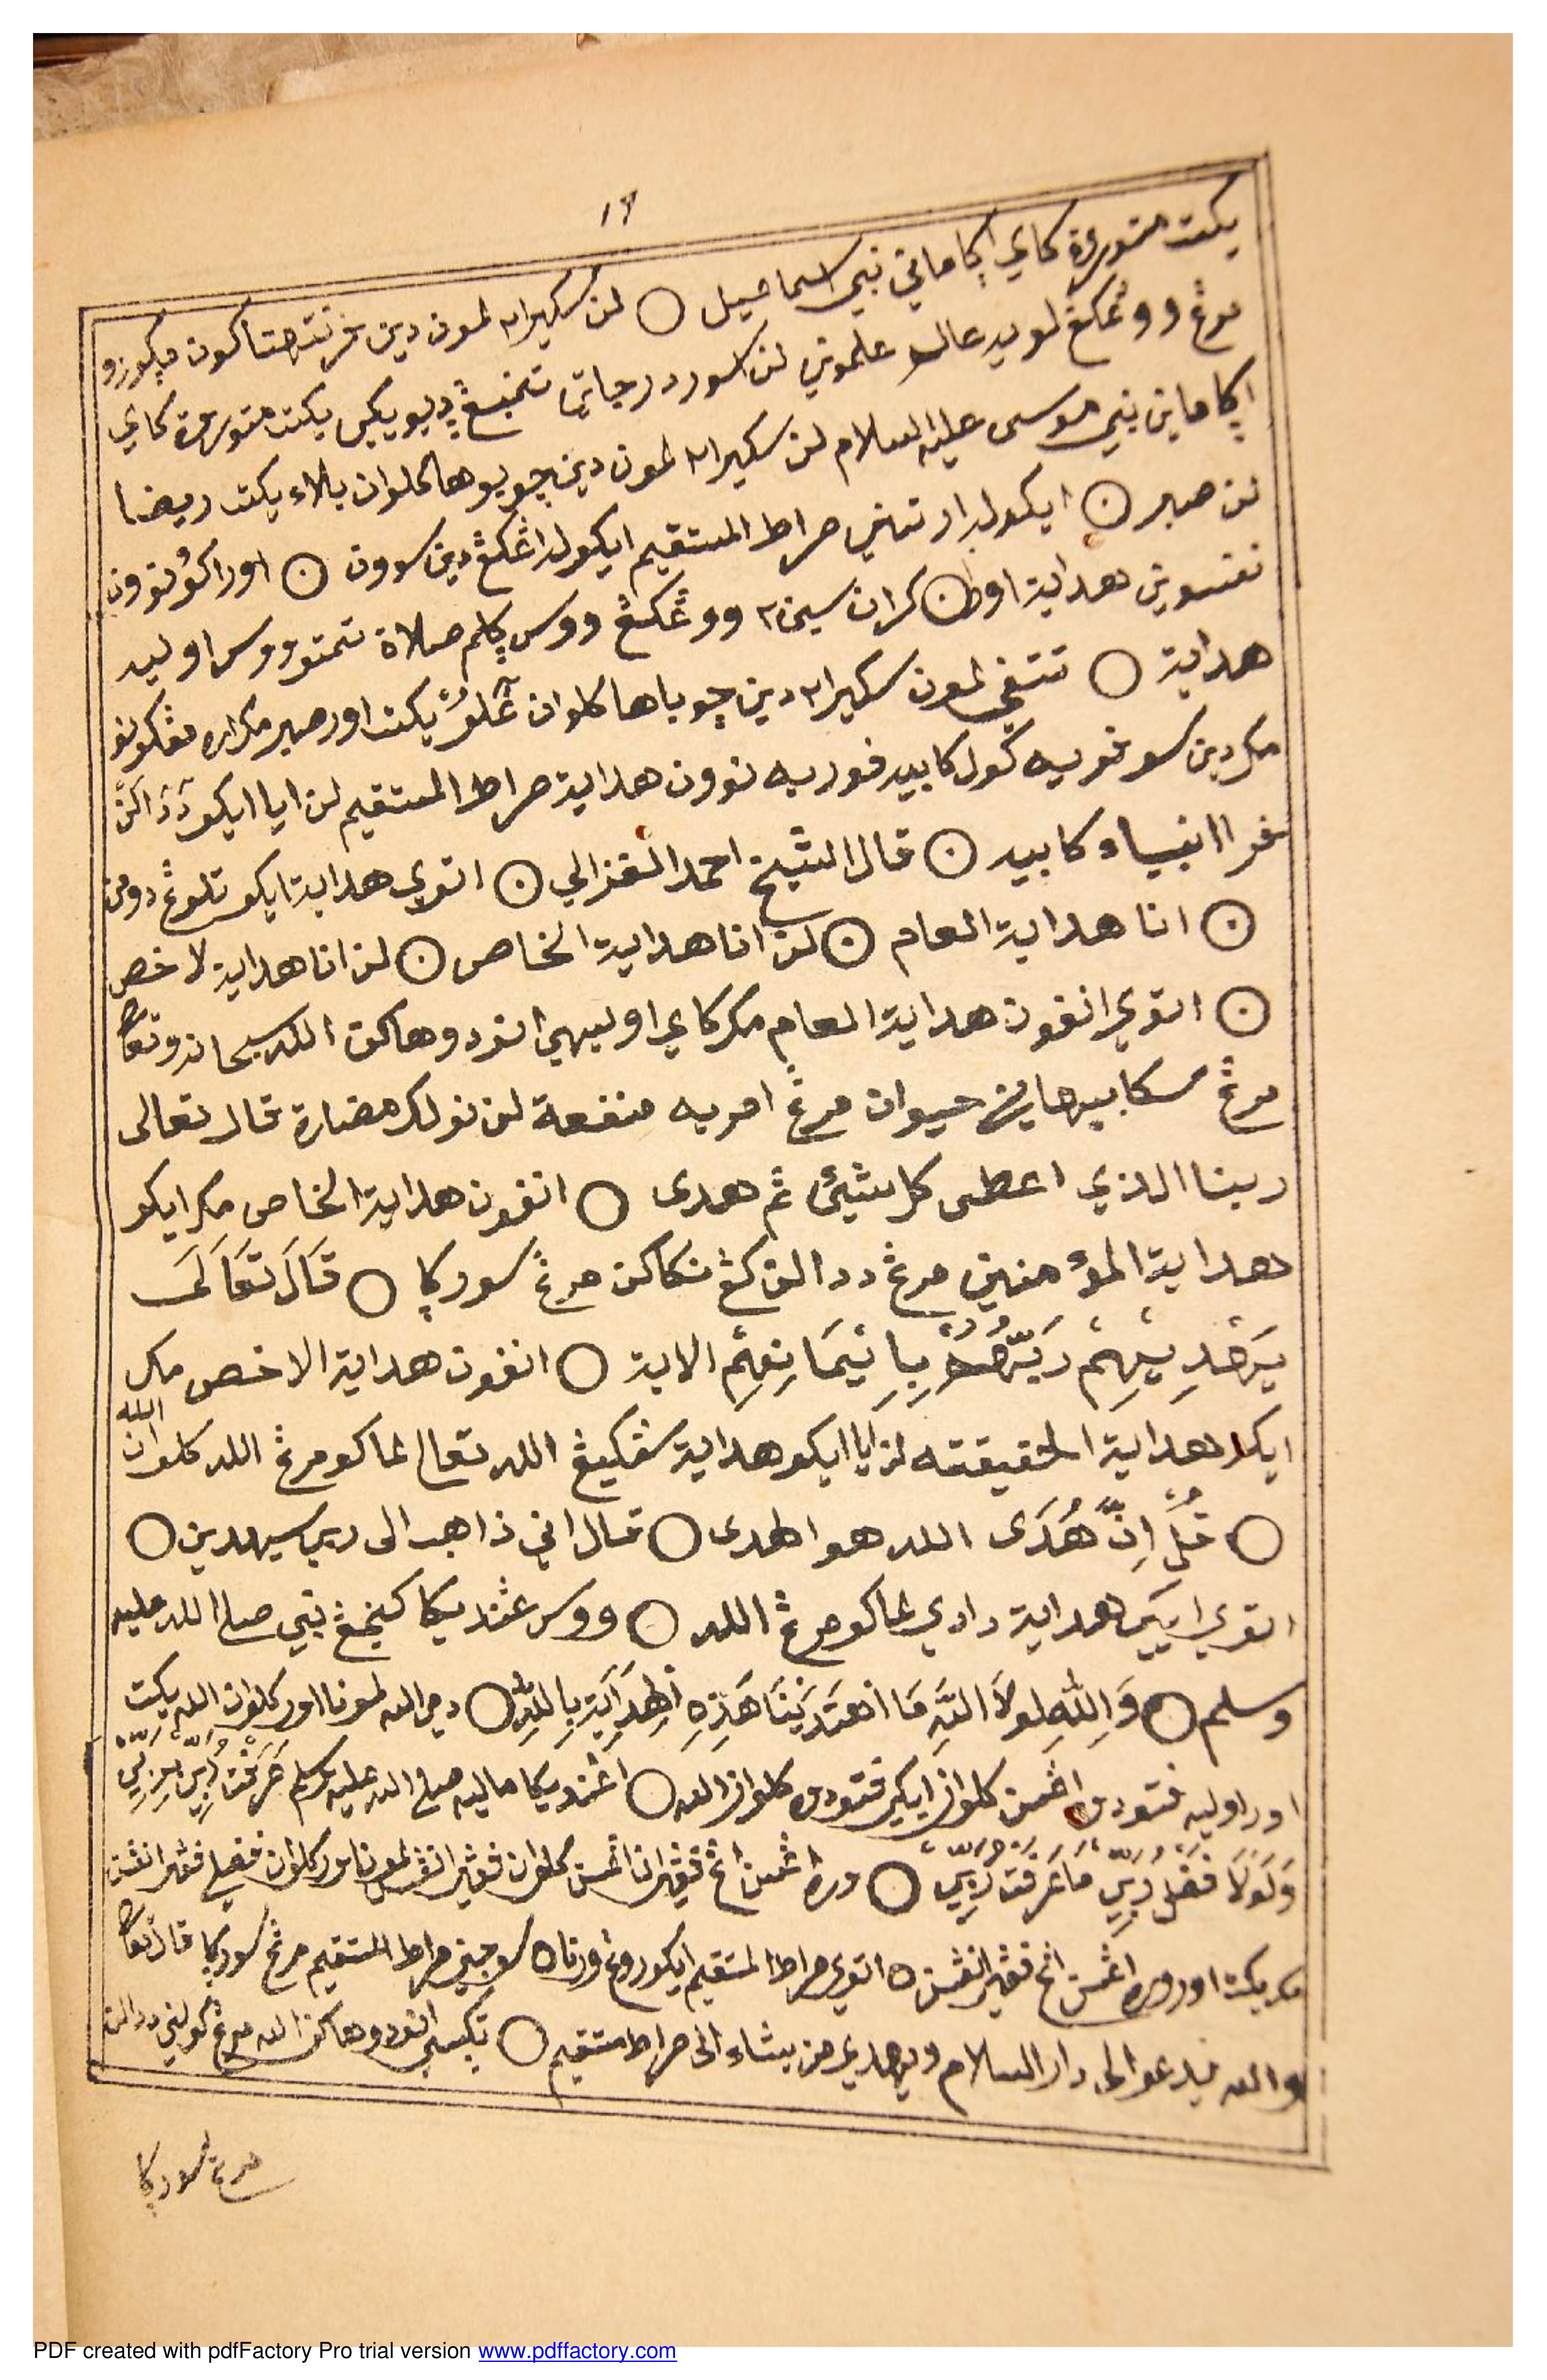 ١٩
يكت متورعة كاي اڮاماني نبي اسماعيل ○ لن سكيرا٢ لمون دين فرنته متاكون ميكورزو
مرڠ ووڠكڠ لويه عالم علموني لن لسور درجاتي تتمبڠ ديويكي يكت متورعة كاي
اڮاماني نبي موسى عليه السلام لن سكيرا٢ لمون دين چوبوها كلوان بلاء يكت ريضا
لن صبر ○ ايكولبدار تماني صراط المستقيم ايكولداڠكڠ دين سوون ○ اورا كونوون
نفسوين هداية اوطن كران سيجي٢ ووڠكڠ ووس ڮلم صلاة تمتو ووس اوليه
هداية ○ تتڤي لمون سكيرا٢ دين چوباها كلوان ... يكت اور صبر مكراره مڠكونو
مكردين سوفريه كول كابيه فوريه نوون هداية صراط المستقيم لن ايا ايكو دداكن
فرا انبياء كابيه ○ قال الشيخ احمد الغزالي ○ اتوي هداية ايكو تلوڠ دومن
○ انا هداية العام ○ لن انا هداية الخاص ○ لن انا هداية لاخص
○ اتوي انفون هداية العام مكركاي اوليهي انودوهاكن الله سبحانه وتعا
مرڠ سكابيهاني حيوان مرڠ امريه منفعة لن نولك مضارة قال تعالى
ربنا الذي اعطى كل شيئ ثم هدى ○ انفون هداية الخاص مكر ايكو
هداية المؤمنين مرڠ ددالن كڠ نكاكن مرڠ سورڮا ○ قَالَ تَعَالَى
يَهْدِيْهِمْ رَبُّهُمْ بِاِيْمَانِهِمْ الاية ○ انفون هداية الاخص مك
ايكو هداية الحقيقته لن ايا ايكو هداية سڤكيڠ الله تعالى لماكو مرڠ الله كلوان الله
○ قُلْ اِنَّ هُدَى الله هو الهدى ○ قال اني ذاهب الى ربي سيهدين ○
اتوي اييكي هداية دادي لماكو مرڠ الله ○ ووس ڠنديكا كنجڠ نبي صلى الله عليه
وسلم ○ وَاللهِ لَولاَ اللهُ مَا اهْتَدَيْنَا هَذِهِ الْهِدَايَة بِاللهِ ○ دمي الله لمونا اور كلوان الله يكت
اور اوليه فتودوه اڠسن كلوان ايكي فتودوه كلوان الله ○ اڠنديكا ماليه صلى الله عليه وسلم عَرَفْتُ رَبِّي بِرَبِّي
وَلَولاَ فَضْلُ رَبِّي مَا عَرَفْتُ رَبِّي ○ وره اڠسن اڠ فڠيران اڠسن كلوان فڠيران اڠسن لمونا اور كلوان فضلي فڠيران اڠسن
مك يكت اور وره اڠسن اڠ فڠيران اڠسن ○ اتوي صراط المستقيم ايكو روڠ ورنا ○ سوجيني صراط المستقيم مرڠ سورڮا قال تعا
والله يدعو الى دار السلام ويهدي من يشاء الى صراط مستقيم ○ تڮسي انودوهاكن الله مرڠ كولني ددالن
مرڠ سورڮا
PDF created with pdfFactory Pro trial version www.pdffactory.com